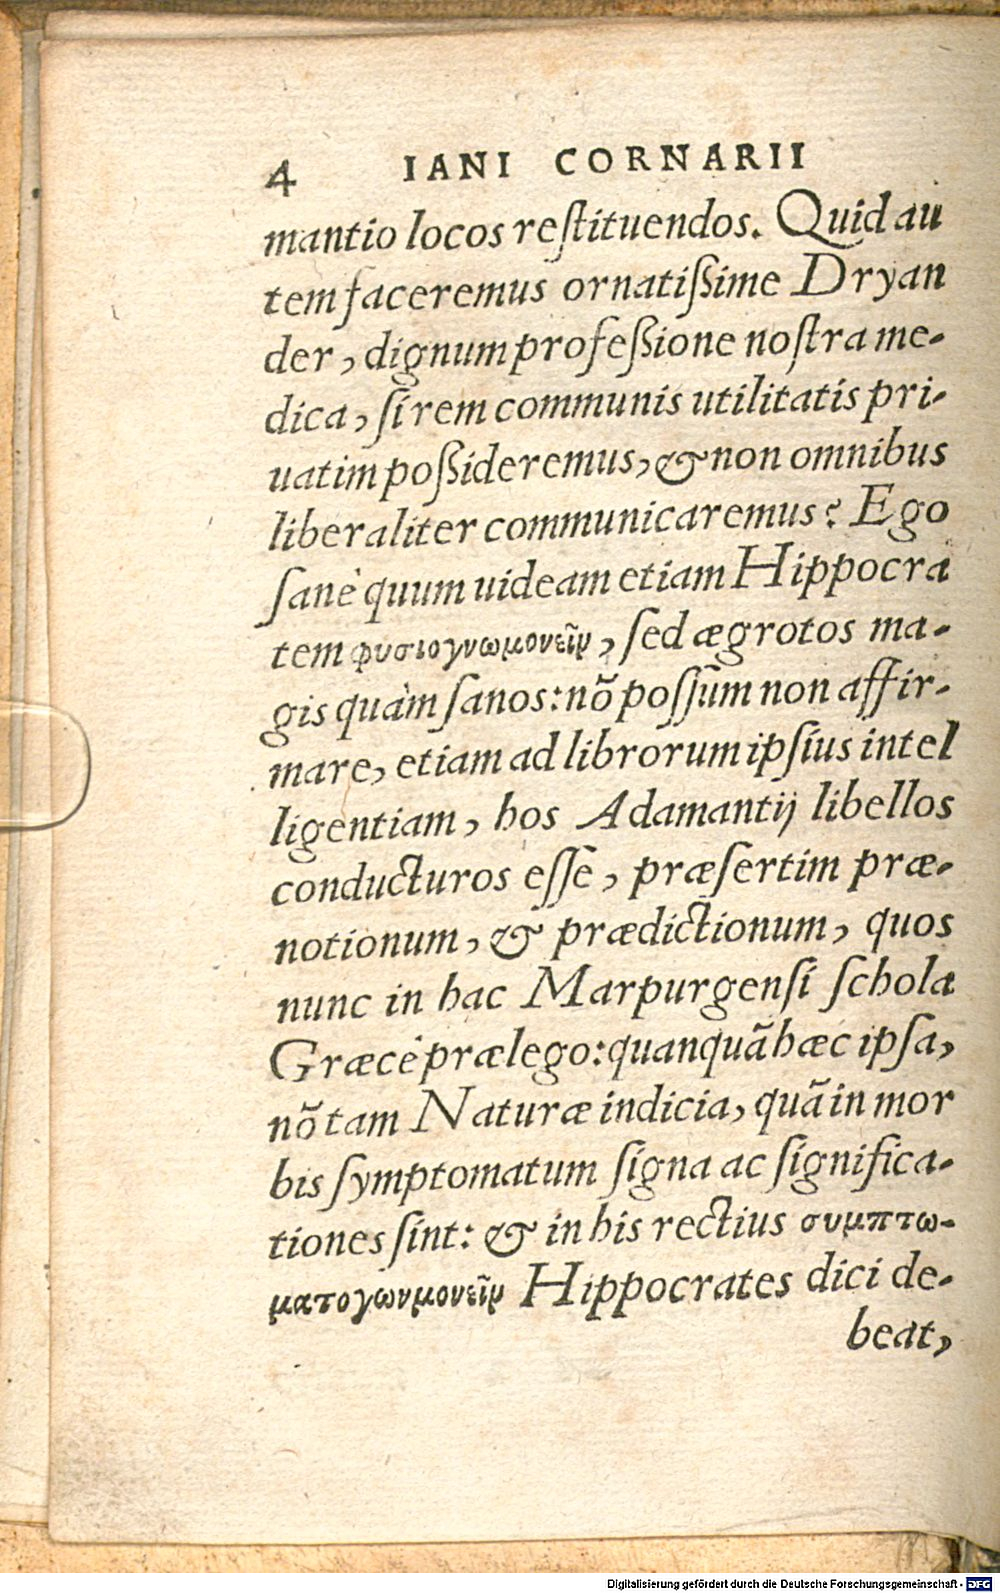 4 IANI CORNARII
mantio locos reſtituendos. Quid au
tem faceremus ornatiſsime Dryan
der, dignum profeſsione noſtra me-
dica, ſi rem communis utilitatis pri-
uatim poſsideremus, & non omnibus
liberaliter communicaremus? Ego
ſanè quum uideam etiam Hippocra
tem φυσιογνωμονεῖν, ſed ægrotos ma-
gis quàm ſanos: nō poſſum non affir-
mare, etiam ad librorum ipſius intel
ligentiam, hos Adamantij libellos
conducturos eſſe, præſertim præ-
notionum, & prædictionum, quos
nunc in hac Marpurgenſi ſchola
Græcè prælego: quanquā hæc ipſa,
nō tam Naturæ indicia, quā in mor
bis ſymptomatum ſigna ac ſignifica-
tiones ſint: & in his rectius συμπτω-
ματογωνμονεῖν Hippocrates dici de-
beat,
Digitalisierung gefördert durch die Deutsche Forschungsgemeinschaft - DFG